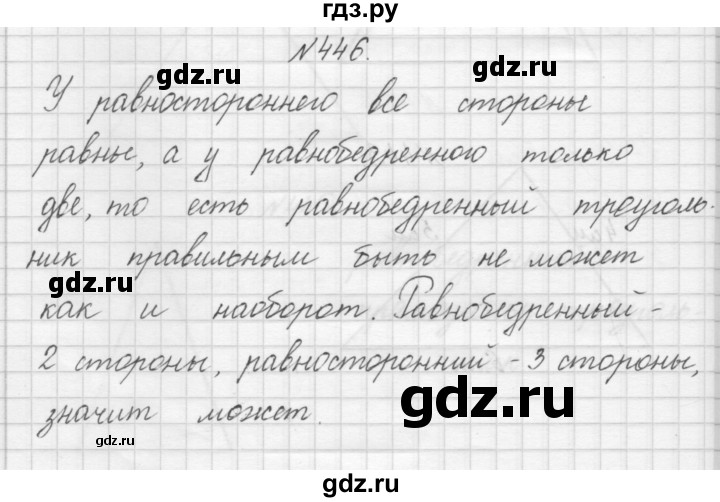 гдз.ру
№446.
gdz.ru
gdz.ru
У равностороннего все стороны
равны, а у равнобедренного только
gdz.ru
gdz.ru
две, то есть равнобедренный треуголь-
ник правильным быть не может
gdz.ru
как и наоборот. Равнобедренный -
2 стороны, равносторонний - 3 стороны,
gdz.ru
значит может.
gdz.ru
gdz.ru